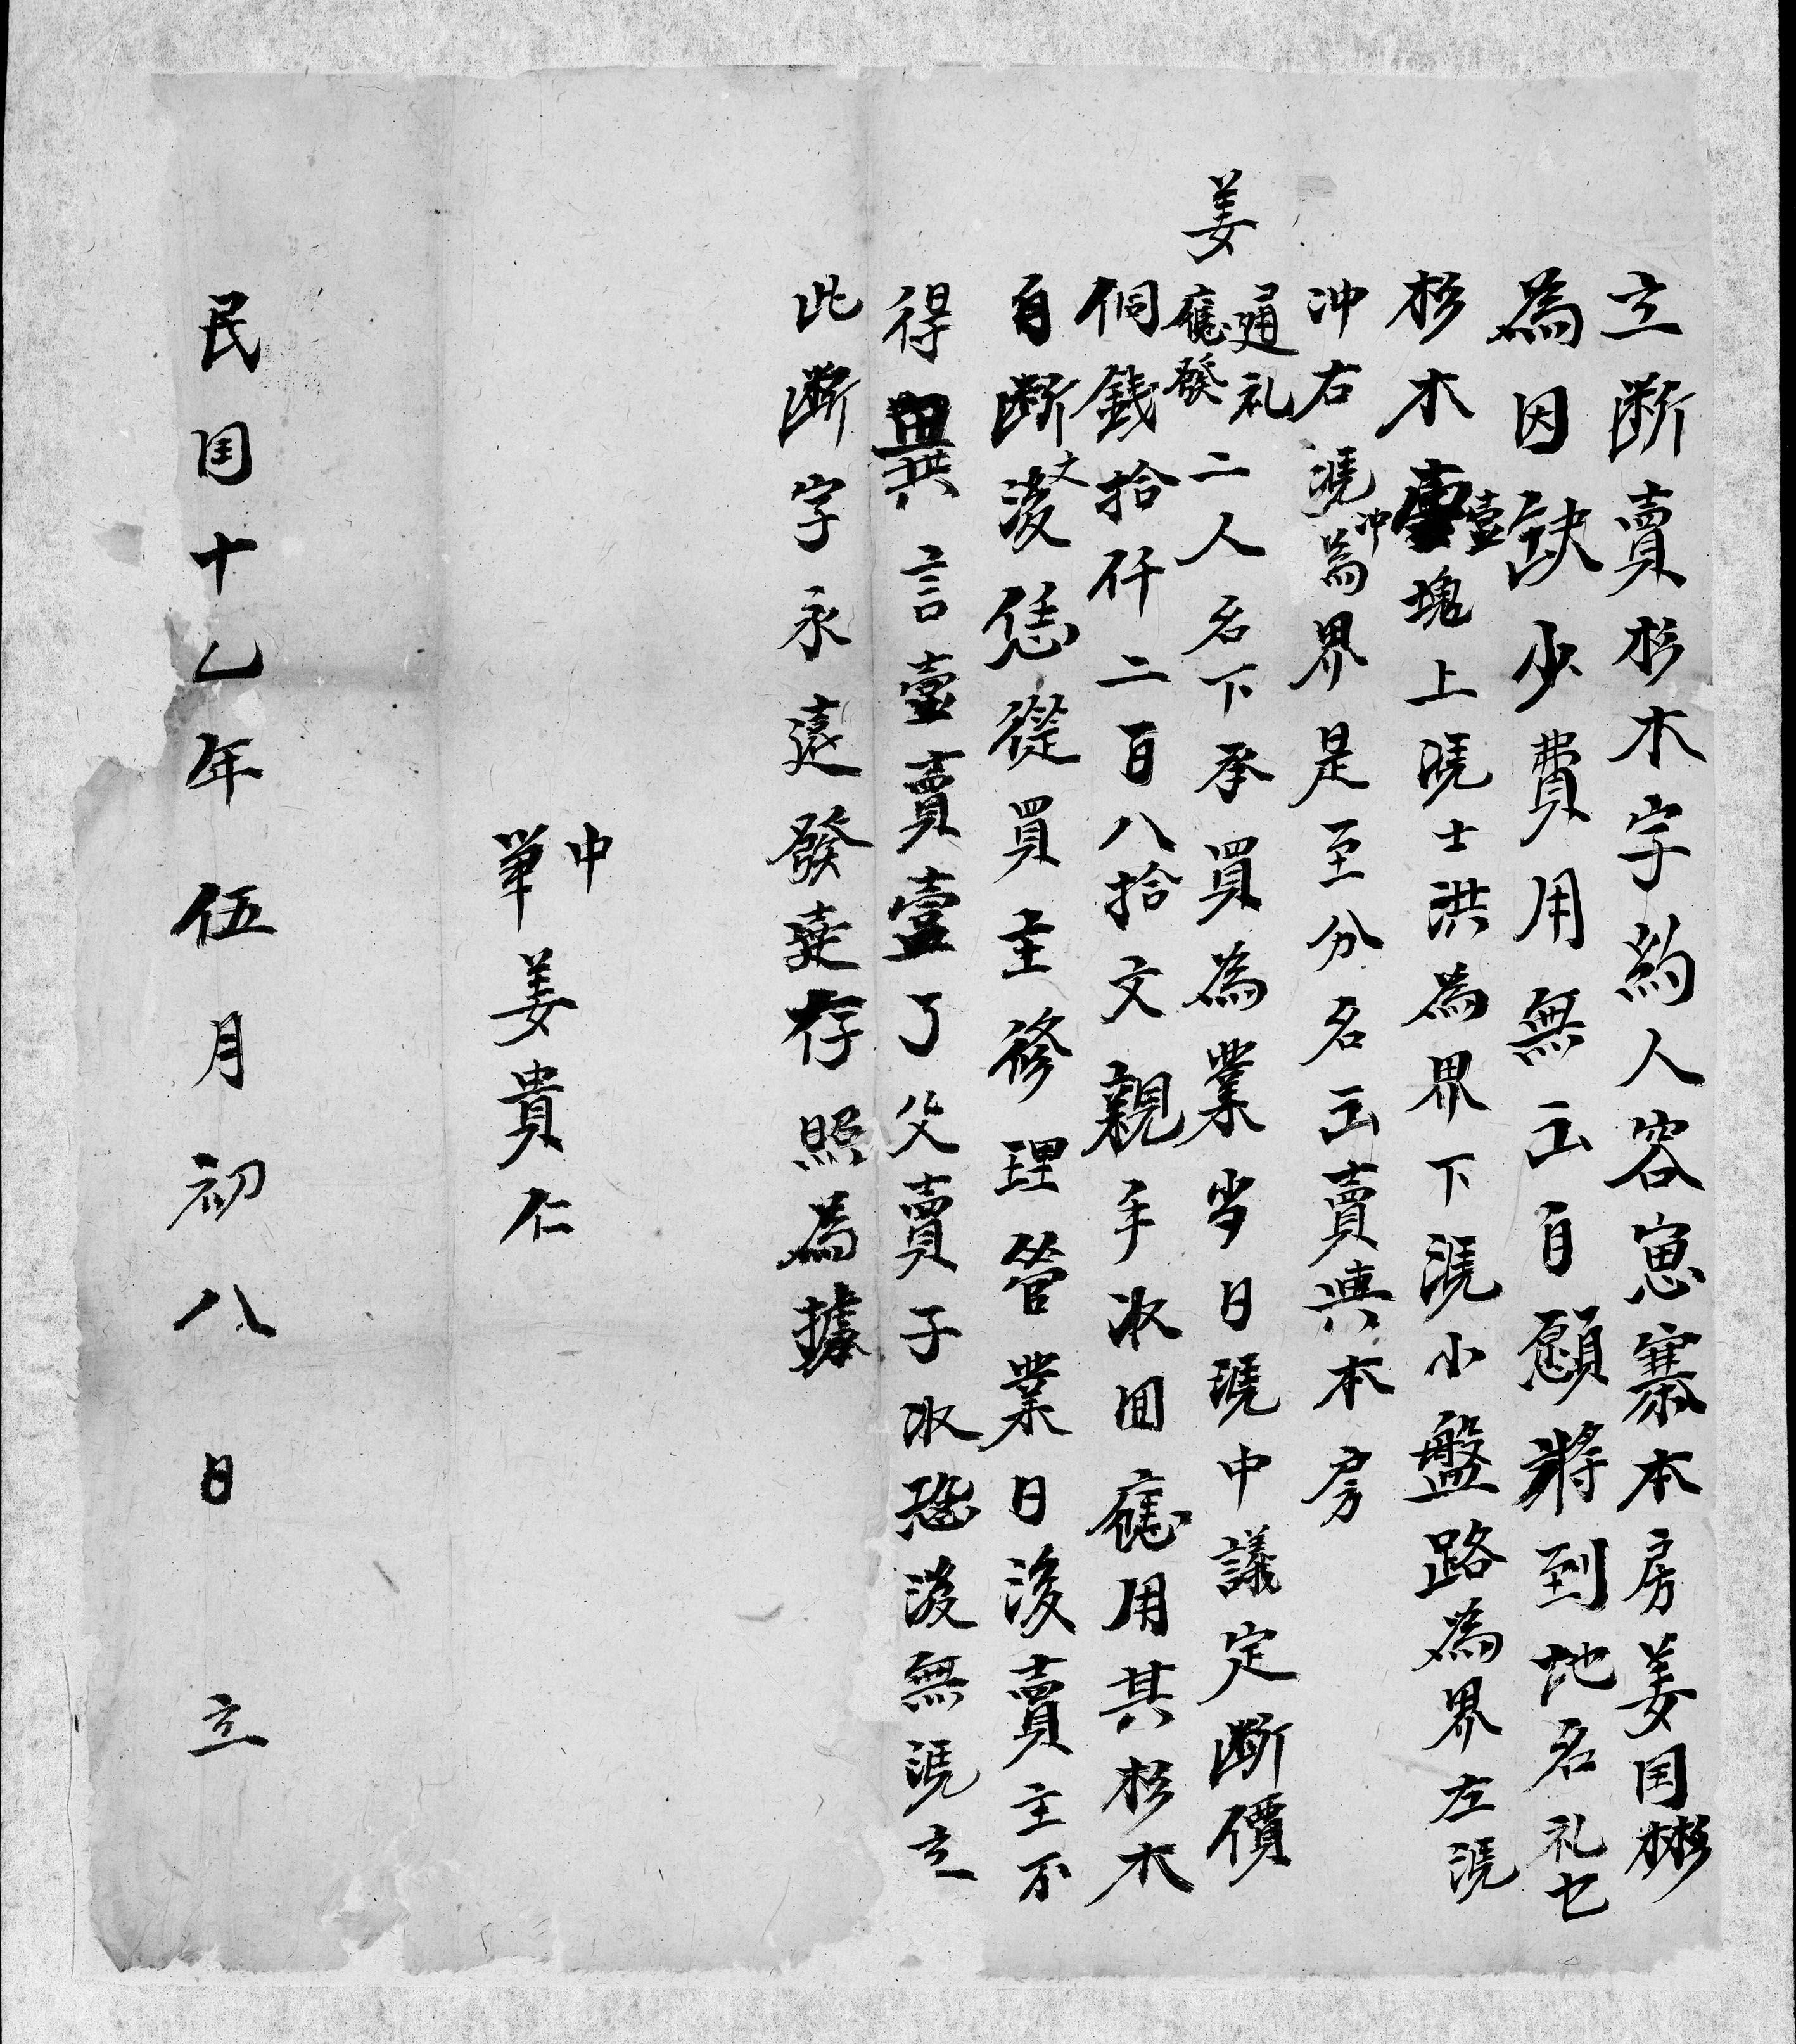 立断賣杉木字約人容崽寨本房姜囯彬
為因缺少費用無出自願將到地名礼七
杉木壹塊上凴士洪為界下凴小盤路為界左凴
冲右凴冲為界是至分名出賣與本房
姜通礼應發二人名下承買為業当日凴中議定断價
侗錢拾仟二百八拾文親手收回應用其杉木
自断之後恁從買主修理管業日後賣主不
得異言壹賣壹了父賣子收恐後無凴立
此断字永遠發達存照為據
中
筆姜貴仁
民囯十乙年伍月初八日立